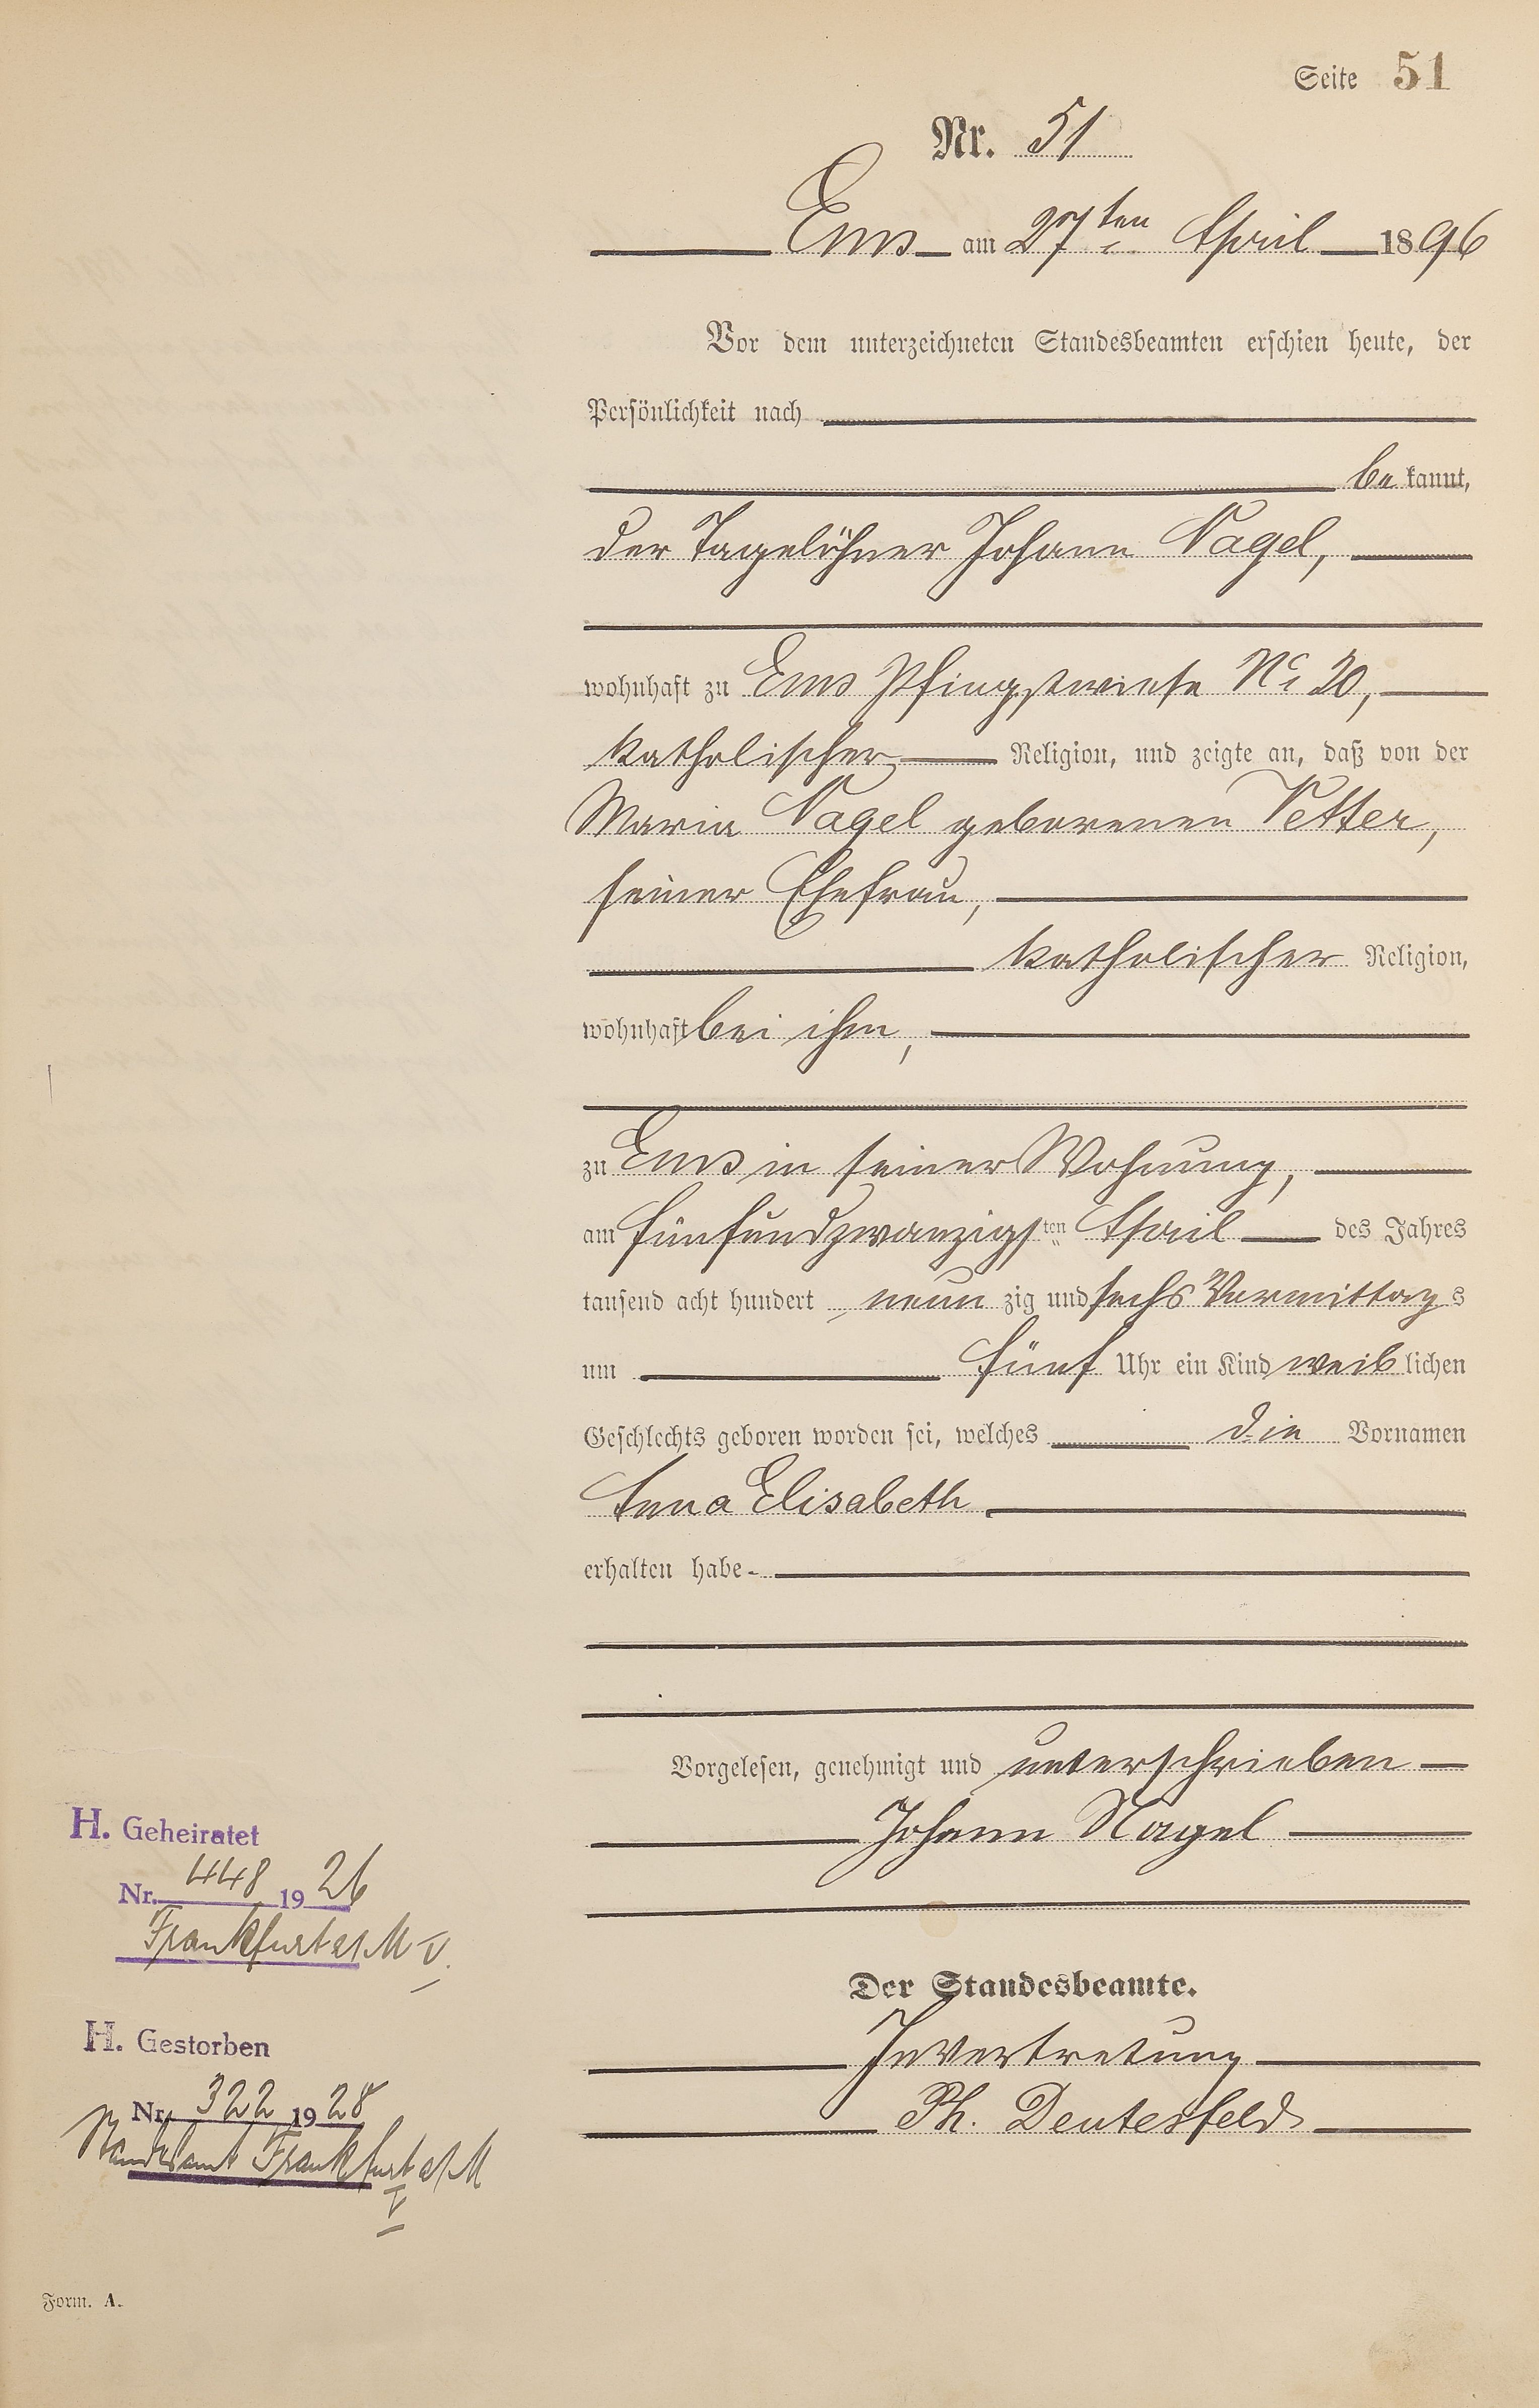 Seite 51
Nr. 51
Ems am 27ten April 1896
Vor dem unterzeichneten Standesbeamten erschien heute, der
Persönlichkeit nach
bekannt,
der Tagelöhner Johann Nagel,
wohnhaft zu Ems Pfingstwiese No 20,
katholischer Religion, und zeigte an, daß von der
Maria Nagel geborenen Vetter,
seiner Ehefrau,
katholischer Religion,
wohnhaft bei ihm,
zu Ems in seiner Wohnung,
am fünfundzwanzigsten April des Jahres
tausend acht hundert neunzig und sechs Vormittags
um fünf Uhr ein Kind weiblichen
Geschlechts geboren worden sei, welches die Vornamen
Anna Elisabeth
erhalten habe
Vorgelesen, genehmigt und unterschrieben
Johann Nagel
Der Standesbeamte.
In Vertretung
Ph. Deutesfeld
H. Geheiratet
Nr. 448 1926
Frankfurt a/M V.
H. Gestorben
Nr. 322 1928
Standesamt Frankfurt a/M
V
Form. A.